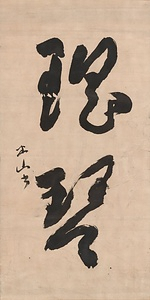 瑶琴
米山書